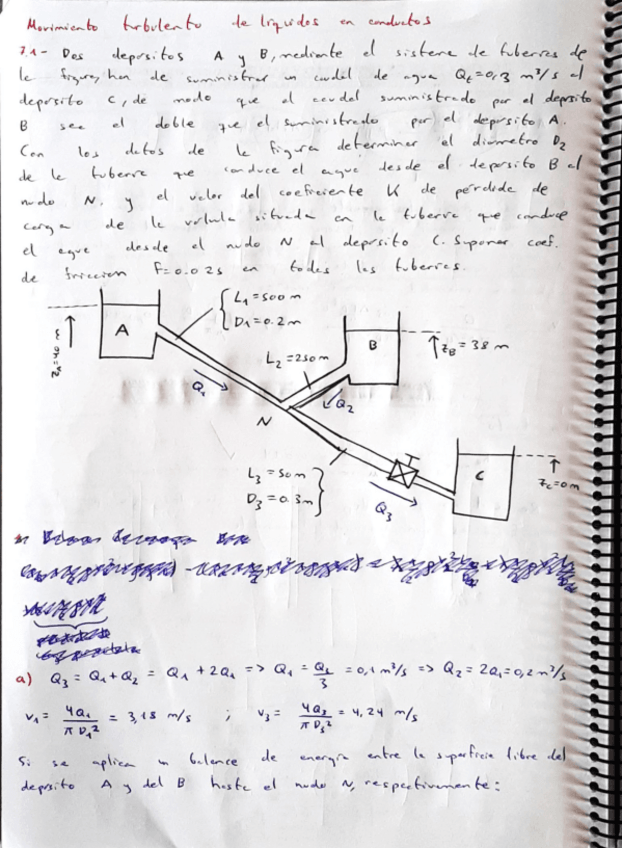 Movimiento turbulento de líquidos en conductos
7.1- Dos depositos A y B, mediante el sistema de tuberias de
la figura, han de suministrar un caudal de agua Qt=0,3 m³/s al
deposito C, de modo que el caudal suministrado por el deposito
B sea el doble que el suministrado por el deposito A.
Con los datos de la figura determinar el diametro D₂
de la tuberia que conduce el agua desde el deposito B al
nudo N. y el valor del coeficiente K de pérdida de
carga de la valvula situada en la tuberia que conduce
el agua desde el nudo N al deposito C. Suponer coef.
de friccion F=0.025 en todas las tuberias.
L₁ = 500 m
D₁ = 0.2 m
A
B
L₂ = 250 m
z_B = 38 m
z_A = 40 m
Q₁
Q₂
N
L₃ = 50 m
D₃ = 0.3 m
C
z_C = 0 m
Q₃
a) Q₃ = Q₁ + Q₂ = Q₁ + 2Q₁ => Q₁ = Q₃/3 = 0,1 m³/s => Q₂ = 2Q₁ = 0,2 m³/s
v₁ = 4Q₁/πD₁² = 3,18 m/s ; v₃ = 4Q₃/πD₃² = 4,24 m/s
Si se aplica un balance de energía entre la superficie libre del
deposito A y del B hasta el nudo N, respectivamente: